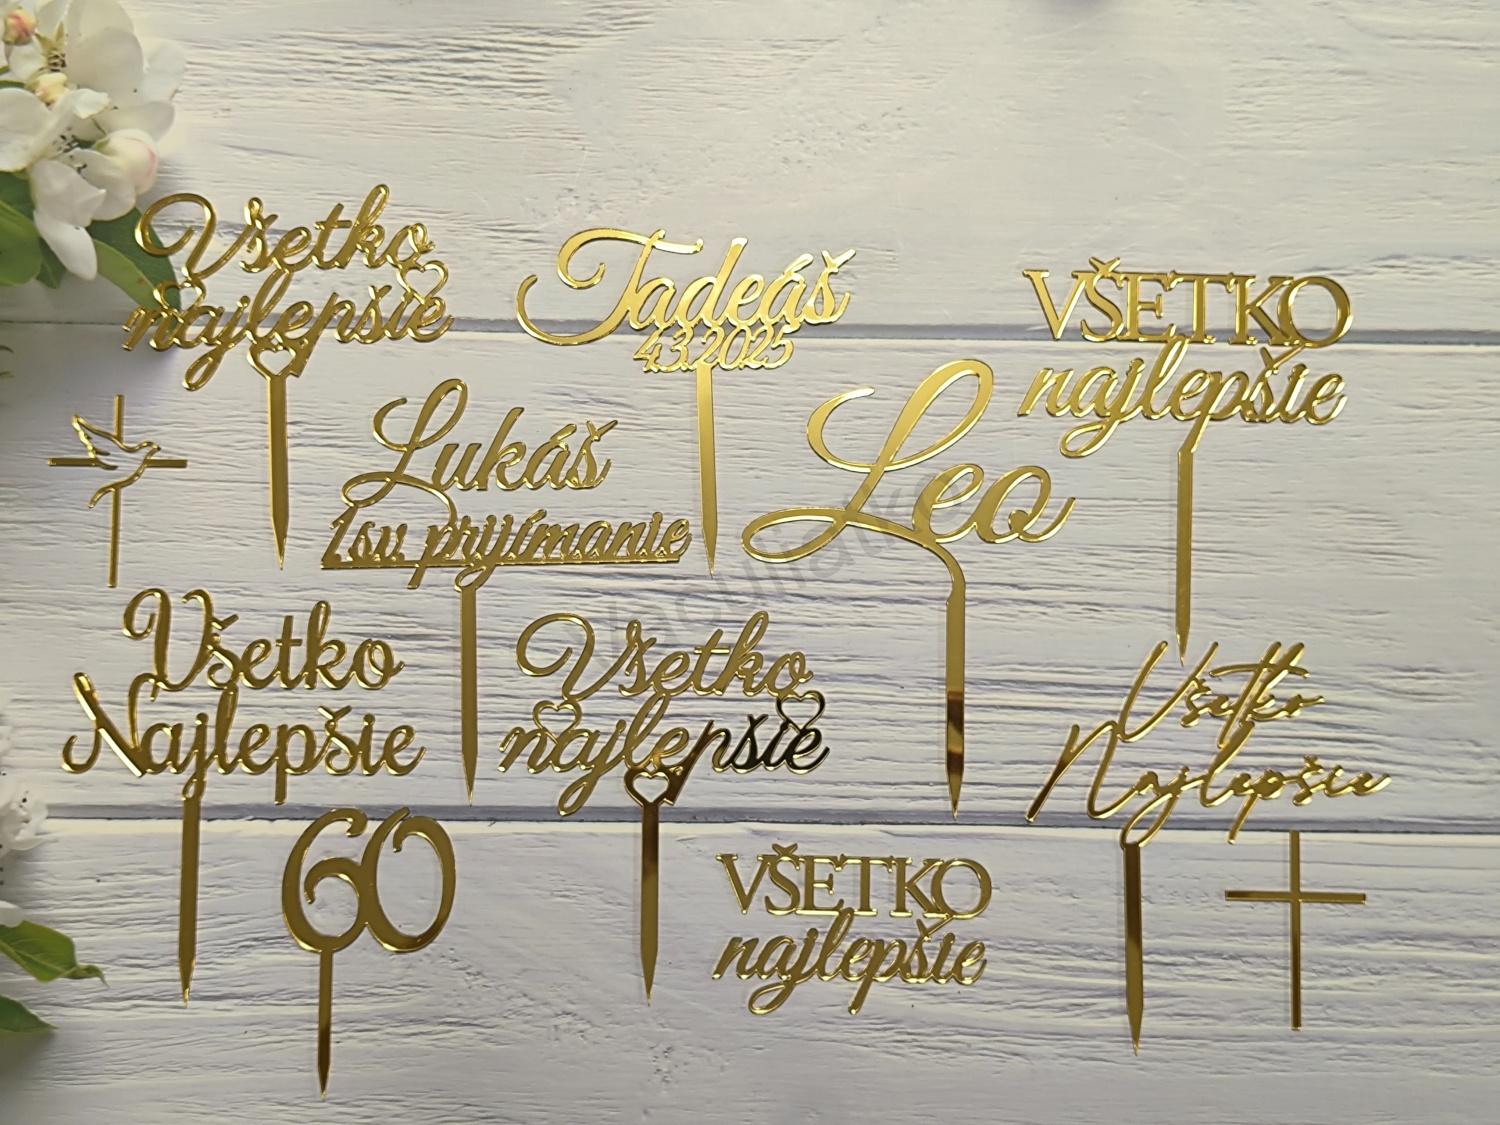 Všetko
najlepšie
Tadeáš
4.3.2025
VŠETKO
najlepšie
Lukáš
1.sv. prijímanie
Leo
Všetko
Najlepšie
Všetko
najlepšie
Všetko
Najlepšie
60
VŠETKO
najlepšie